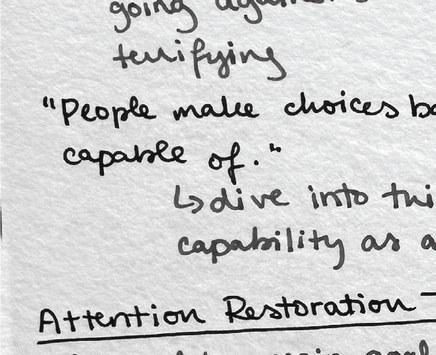 going
terrifying
"People make choices
capable of."
↳ dive into
capability as a
Attention Restoration